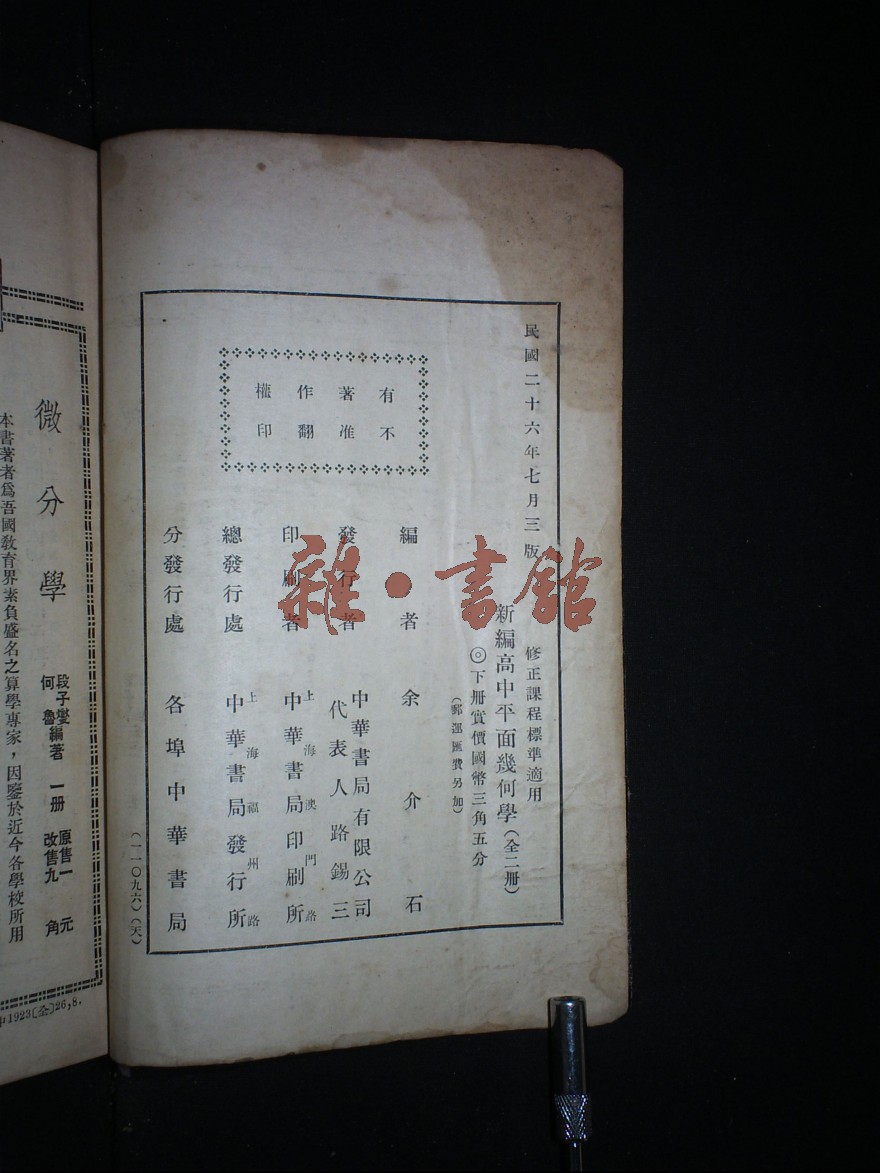 民國二十六年七月三版
修正課程標準適用
新編高中平面幾何學(全二冊)
◎下冊實價國幣三角五分
(郵運匯費另加)
有著作權
不准翻印
編者 余介石
發行者 中華書局有限公司
代表人路錫三
印刷者 上海澳門路
中華書局印刷所
總發行處 上海福州路
中華書局發行所
分發行處 各埠中華書局
(一一〇九六)(天)
雜·書館
微分學
段子燮
何魯編著
一冊
原售一元
改售九角
本書著者爲吾國教育界素負盛名之算學專家,因鑒於近今各學校所用
1923(全)26,8.